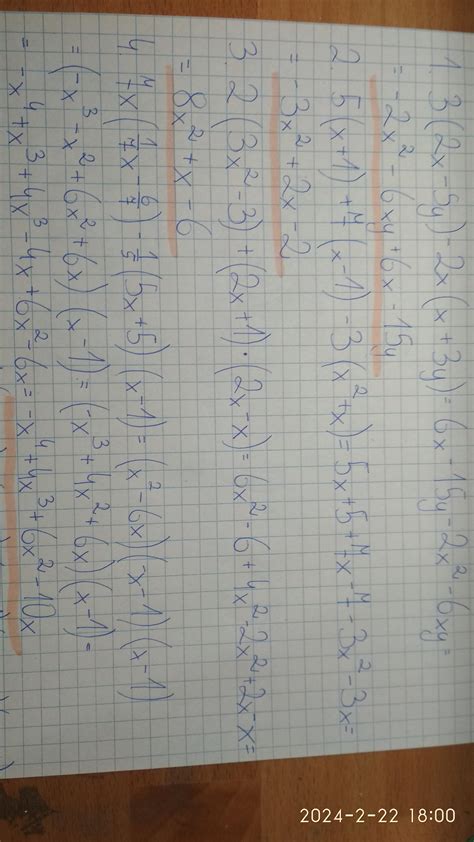 1. 3(2x-5y)-2x(x+3y)=6x-15y-2x²-6xy=
=-2x²-6xy+6x-15y
2. 5(x+1)+7(x-1)-3(x²+x)=5x+5+7x-7-3x²-3x=
=-3x²+2x-2
3. 2(3x²-3)+(2x+1)·(2x-x)=6x²-6+4x²-2x²+2x-x=
=8x²+x-6
4. 7x(1/7x-6/7)-1/5(5x+5)(x-1)=(x²-6x)(-x-1)(x-1)
=(-x³-x²+6x²+6x)(x-1)=(-x³+4x²+6x)(x-1)=
=-x⁴+x³+4x³-4x+6x²-6x=-x⁴+4x³+6x²-10x
2024-2-22 18:00